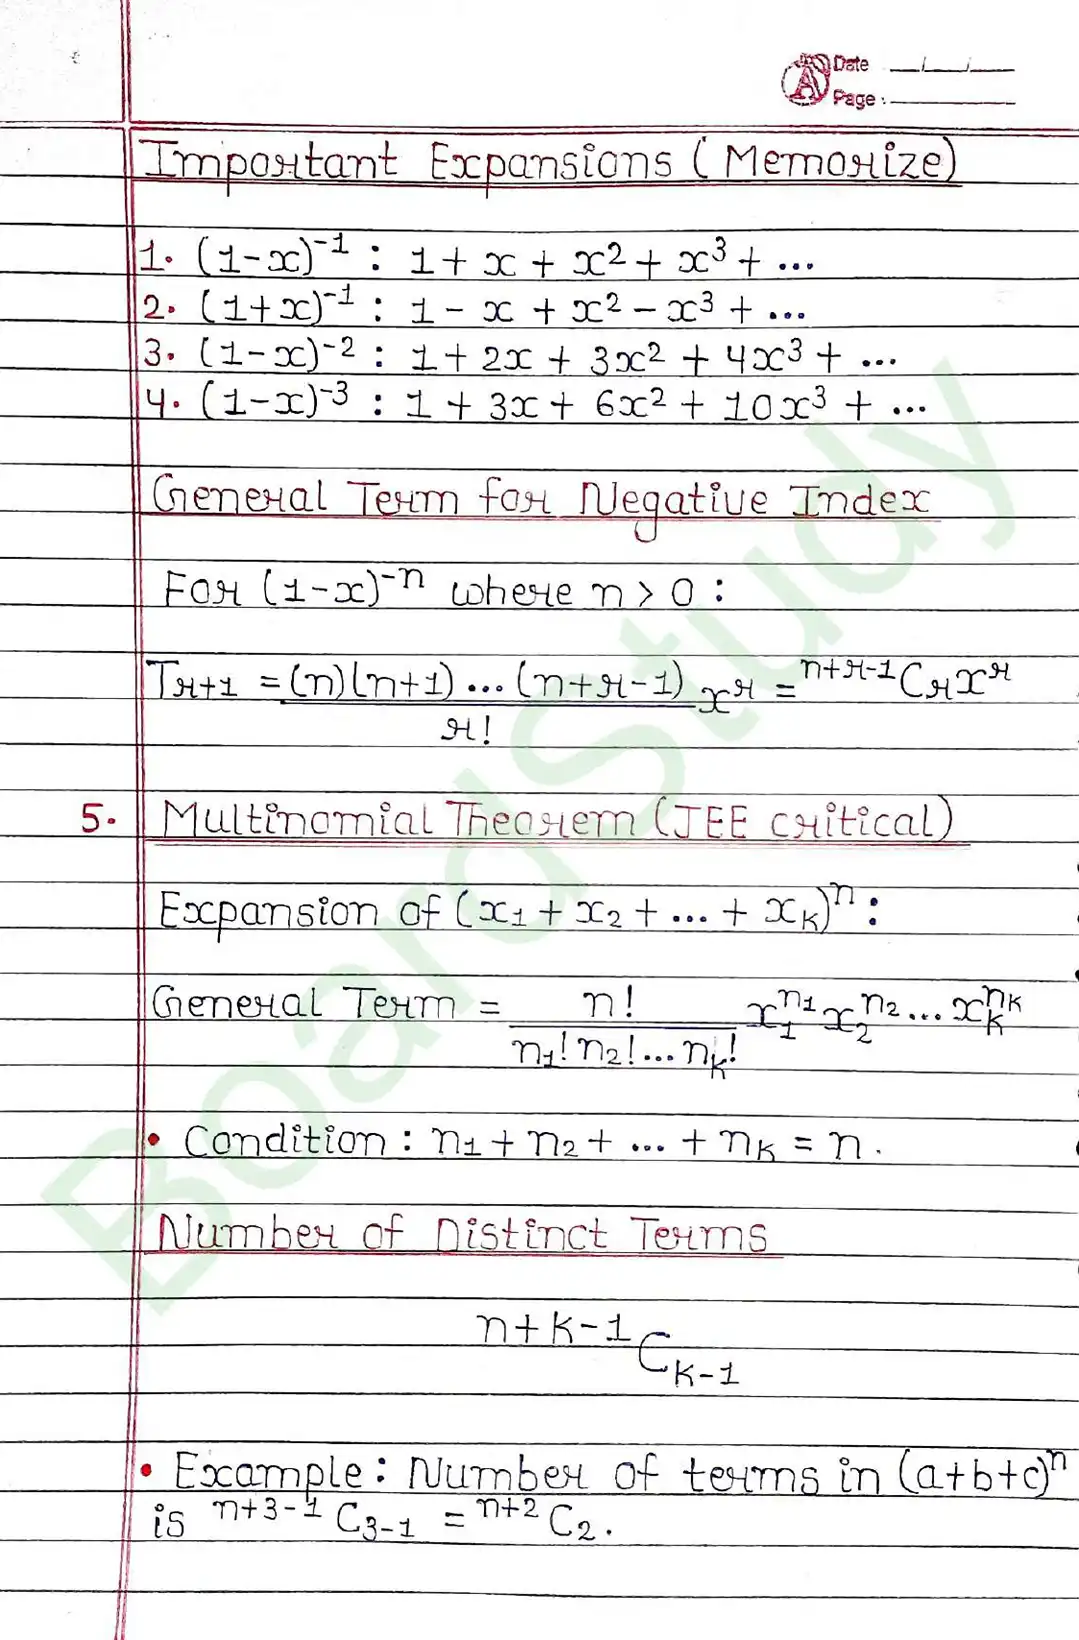 Date __/__/__
Page : ______
Important Expansions (Memorize)
1. (1-x)⁻¹ : 1 + x + x² + x³ + ...
2. (1+x)⁻¹ : 1 - x + x² - x³ + ...
3. (1-x)⁻² : 1 + 2x + 3x² + 4x³ + ...
4. (1-x)⁻³ : 1 + 3x + 6x² + 10x³ + ...
General Term for Negative Index
For (1-x)⁻ⁿ where n > 0 :
T_{r+1} = \frac{(n)(n+1)...(n+r-1)}{r!} x^r = ^{n+r-1}C_r x^r
5. Multinomial Theorem (JEE critical)
Expansion of (x₁ + x₂ + ... + x_k)ⁿ :
General Term = \frac{n!}{n₁! n₂! ... n_k!} x₁^{n₁} x₂^{n₂} ... x_k^{n_k}
• Condition : n₁ + n₂ + ... + n_k = n .
Number of Distinct Terms
^{n+k-1}C_{k-1}
• Example : Number of terms in (a+b+c)ⁿ
is ^{n+3-1}C_{3-1} = ^{n+2}C₂ .
BoardStudy